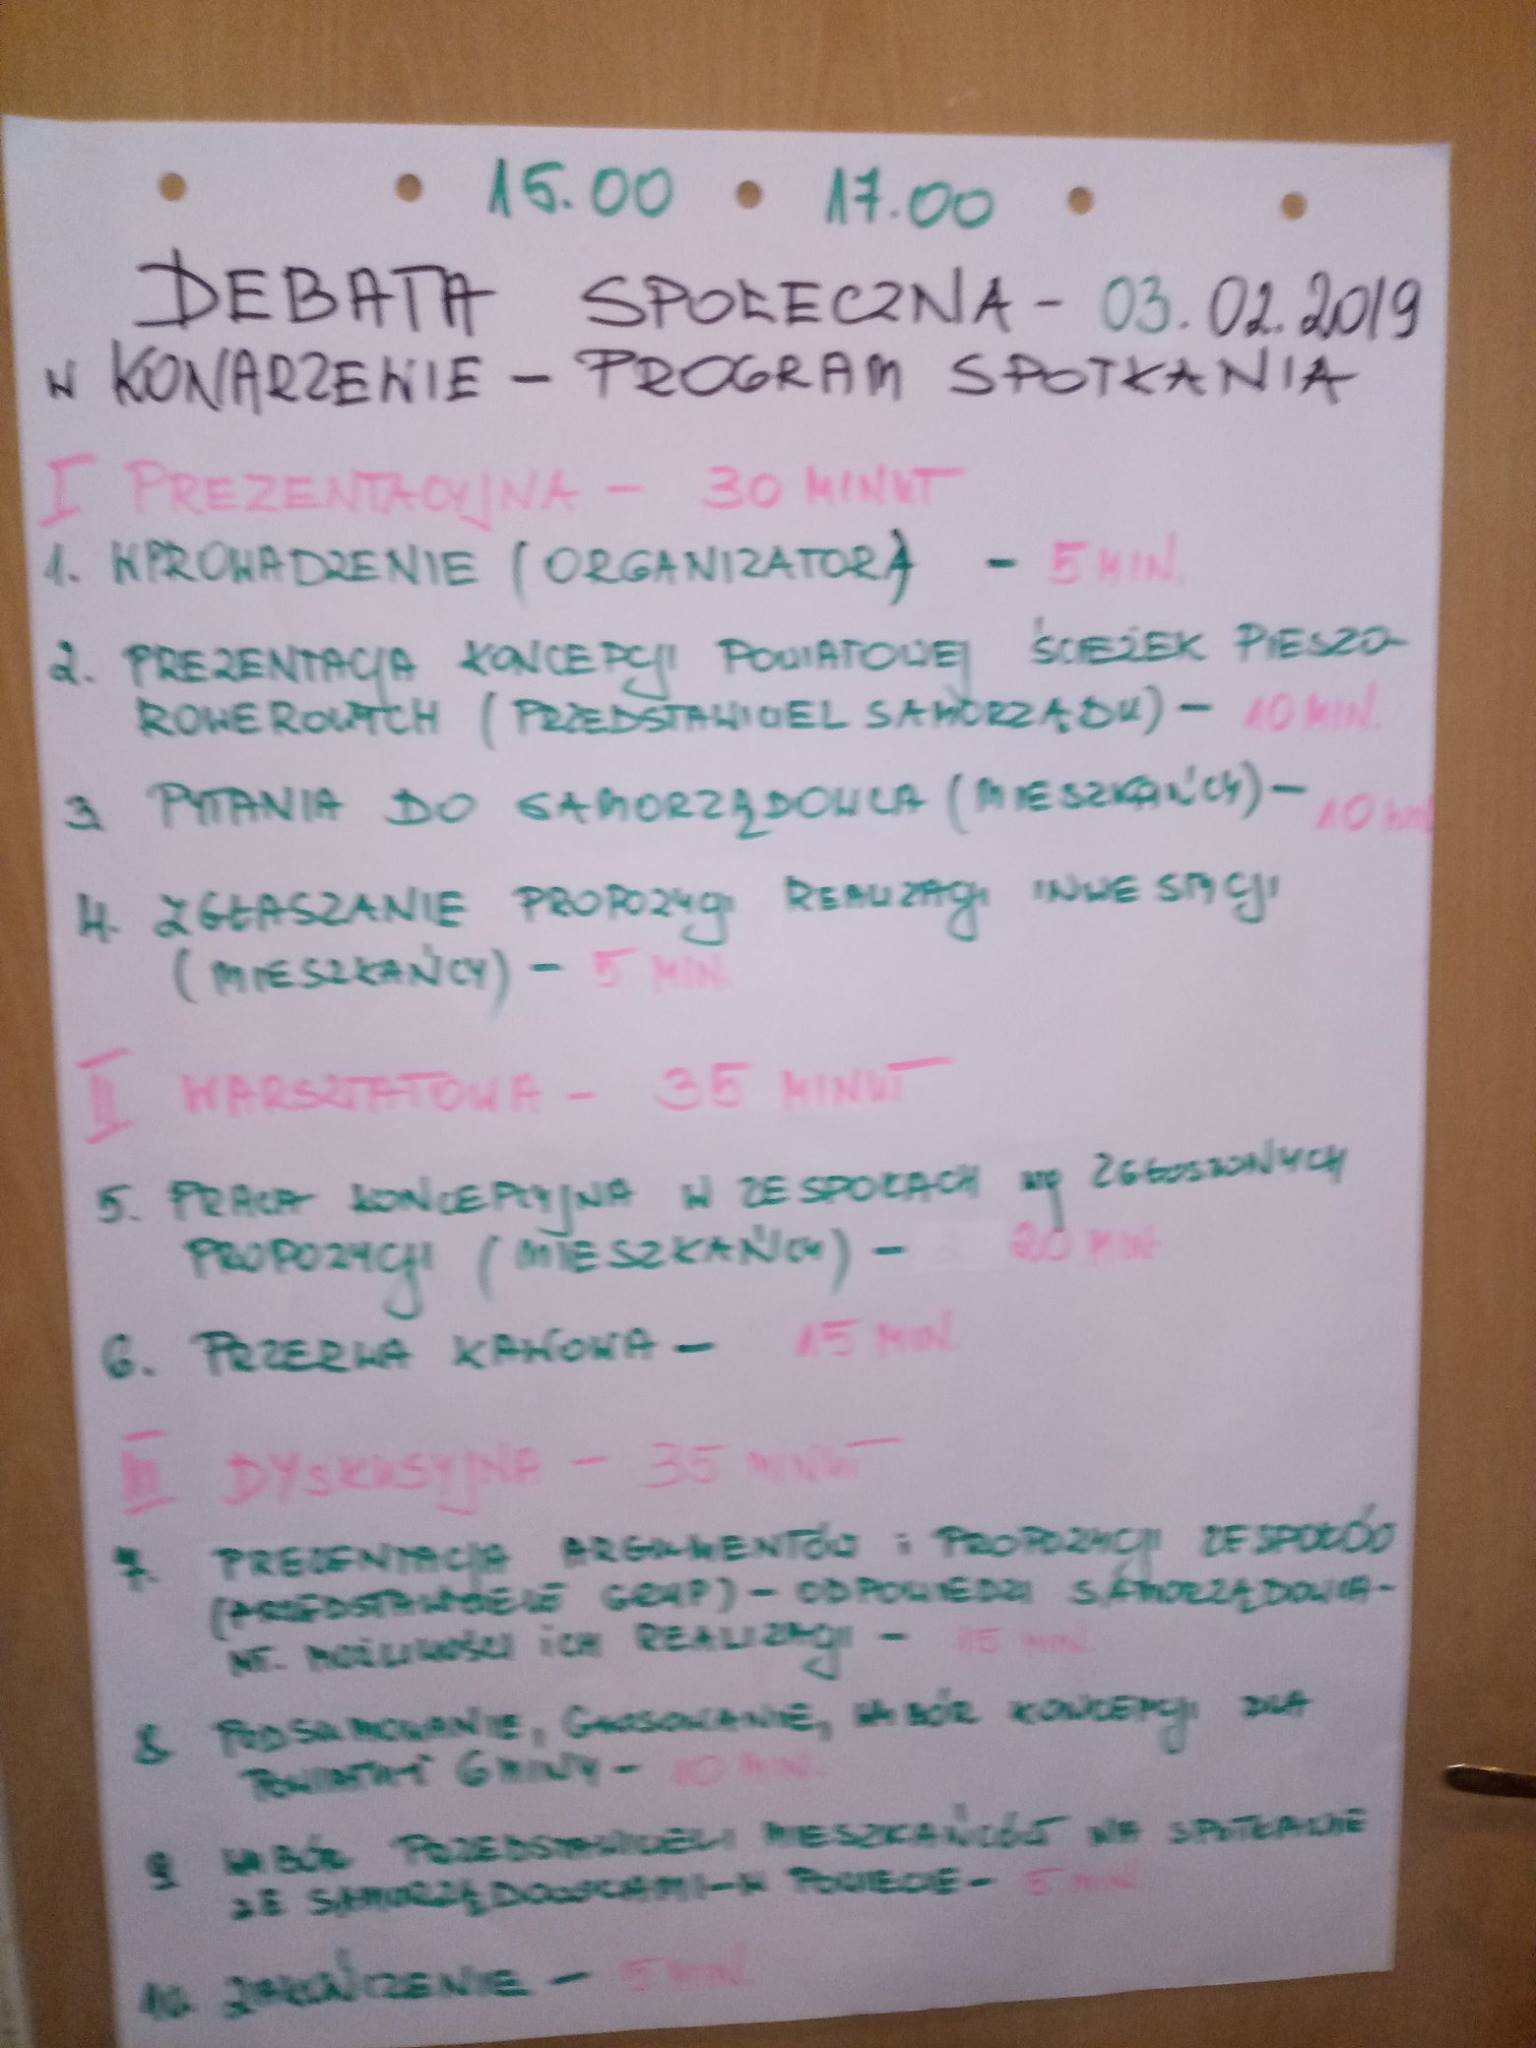 15.00 17.00
DEBATA SPOŁECZNA - 03.02.2019
W KONARZEWIE - PROGRAM SPOTKANIA
I PREZENTACYJNA - 30 MINUT
1. WPROWADZENIE (ORGANIZATORA) - 5 MIN.
2. PREZENTACJA KONCEPCJI POWIATOWEJ ŚCIEŻEK PIESZO-
ROWEROWYCH (PRZEDSTAWICIEL SAMORZĄDU) - 10 MIN.
3 PYTANIA DO SAMORZĄDOWCA (MIESZKAŃCY) - 10 min
4. ZGŁASZANIE PROPOZYCJI REALIZACJI INWESTYCJI
(MIESZKAŃCY) - 5 MIN.
II WARSZTATOWA - 35 MINUT
5. PRACA KONCEPCYJNA W ZESPOŁACH wg ZGŁOSZONYCH
PROPOZYCJI (MIESZKAŃCY) - 20 MIN
6. PRZERWA KAWOWA - 15 MIN.
III DYSKUSYJNA - 35 MINUT
7. PREZENTACJA ARGUMENTÓW i PROPOZYCJI ZESPOŁÓW
(PRZEDSTAWICIELE GRUP) - ODPOWIEDZI SAMORZĄDOWCA -
NT. MOŻLIWOŚCI ICH REALIZACJI - 15 MIN.
8 PODSUMOWANIE, GŁOSOWANIE, WYBÓR KONCEPCJI DLA
GMINY - 10 MIN.
9 WYBÓR PRZEDSTAWICIELI MIESZKAŃCÓW NA SPOTKANIE
ZE SAMORZĄDOWCAMI - W POWIECIE - 5 MIN
10. ZAKOŃCZENIE - 5 MIN.